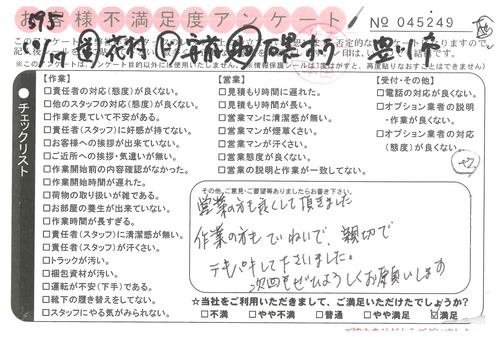 お客様不満足度アンケート
No 045249
【作業】
□責任者の対応(態度)が良くない。
□他のスタッフの対応(態度)が良くない。
□作業を見ていて不安がある。
□責任者(スタッフ)に好感が持てない。
□お客様への挨拶が出来ていない。
□ご近所への挨拶・気遣いが無い。
□作業開始前の内容確認がなかった。
□作業開始時間が遅れた。
□荷物の取り扱いが雑である。
□お部屋の養生が出来ていない。
□作業時間が長すぎる。
□責任者(スタッフ)に清潔感が無い。
□責任者(スタッフ)が汗くさい。
□トラックが汚い。
□梱包資材が汚い。
□運転が不安(下手)である。
□靴下の履き替えをしてない。
□スタッフにやる気がみられない。
チェックリスト
【営業】
□見積もり時間に遅れた。
□見積もり時間が長い。
□営業マンに清潔感が無い。
□営業マンが煙草くさい。
□営業マンが汗くさい。
□営業態度が良くない。
□営業の説明と作業が一致してない。
【受付・その他】
□電話の対応が良くない。
□オプション業者の説明・作業が良くない。
□オプション業者の対応(態度)が良くない。
その他、ご意見・ご要望等ありましたらお書き下さい。
営業の方も良くして頂きました
作業の方もていねいで、親切で
テキパキしてくださいました。
次回もぜひよろしくお願いします
☆当社をご利用いただきまして、ご満足いただけたでしょうか?
□不満 □やや不満 □普通 □やや満足 ☑満足